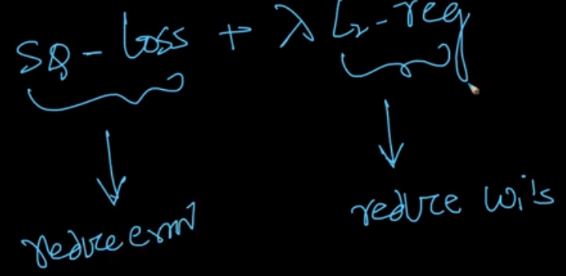 sq-loss + λ L2-reg
reduce error reduce wi's